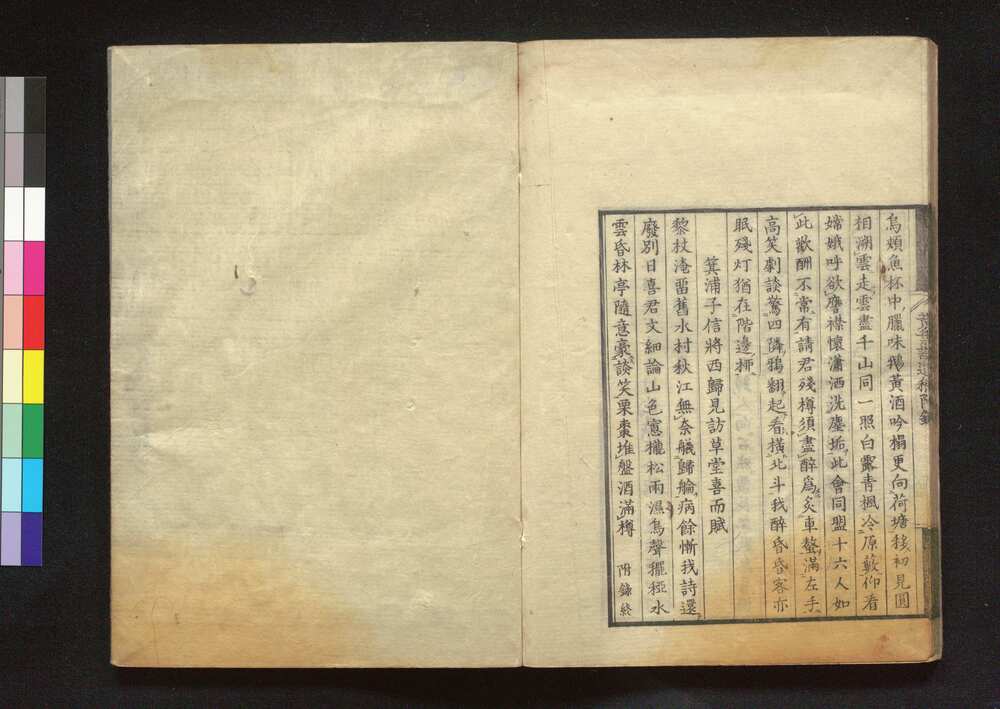 烏頬魚杯中臘味鵝黃酒吟榻更向荷塘移初見圓
相溯雲走雲盡千山同一照白露青楓冷原藪仰看
嫦娥呼欲譍襟懷瀟洒洗塵垢此會同盟十六人如
此歡酬不常有請君殘樽須盡醉爲炙車螯滿左手
高笑劇談驚四隣鴉翻起看橫北斗我醉昏昏客亦
眠殘灯猶在階邊柳
箕浦子信將西歸見訪草堂喜而賦
藜杖淹留舊水村秋江無奈艤歸艙病餘慚我詩還
廢別日喜君文細論山色窻櫳松雨濕鳥聲䆉稏水
雲昏林亭隨意豪談笑栗棗堆盤酒滿樽
附錄終